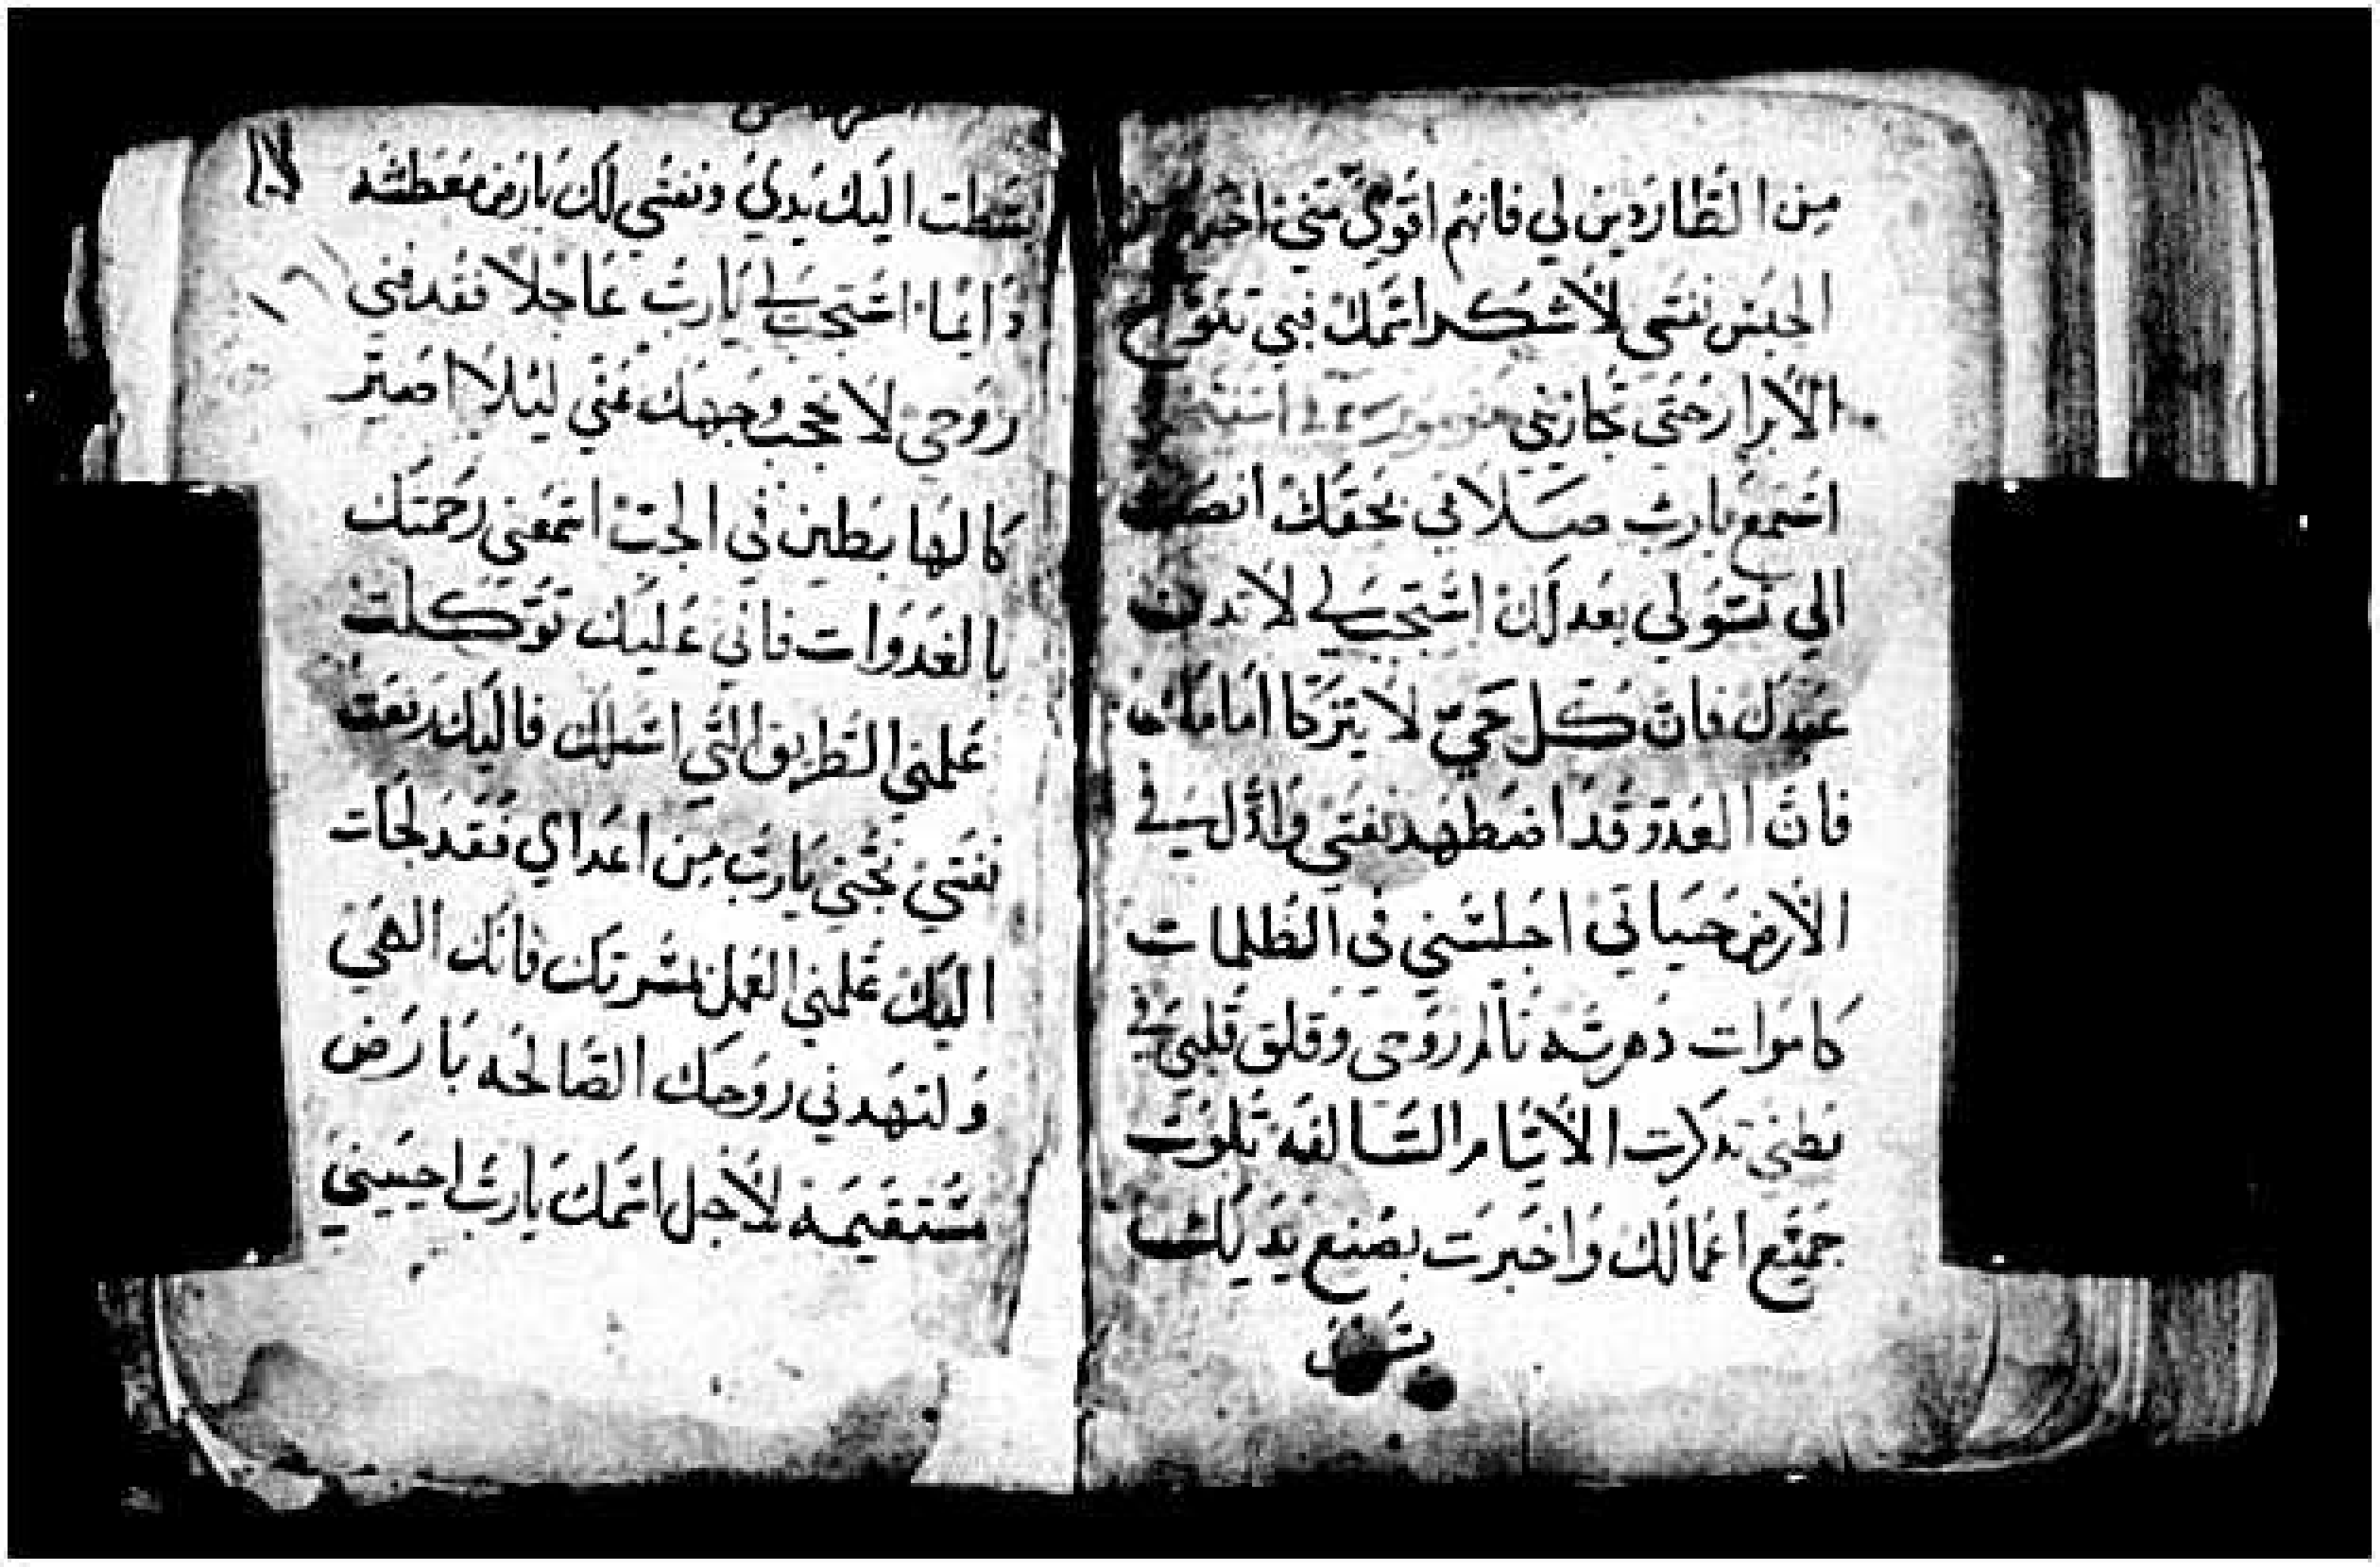 من الطاردين لي فانهم اقوي مني اخرج من
الحبس نفسي لاشكر اسمك فبي تتوقع
الابرار حتي تجازيني مزمور
استمع يارب صلاتي بحقك انصت
الي تتولي بعدلك استجب لي لا تدن
عبدك فان كل حي لا يتزكا امامك
فان العدو قد اضطهد نفسي واذل في
الارض حياتي اجلسني في الظلمات
كاموات دهرته تالم روحي وقلق قلبي في
بطني تذكرت الايام السالفه تلوت
جميع اعمالك واخبرت بصنع يديك
بسطت اليك يدي ونفسي لك بارض معطشه
دايما استجب لي يارب عاجلا فقد فني
روحي لا تحجب وجهك عني ليلا اصير
كالهابطين في الجب اسمعني رحمتك
بالغدوات فاني عليك توكلت
علمني الطريق التي اسلك فاليك رفعت
نفسي نجني يارب من اعداي فقد لجات
اليك علمني العمل بمسرتك فانك الهي
ولتهدني روحك الصالحه بارض
مستقيمه لاجل اسمك يارب احييني